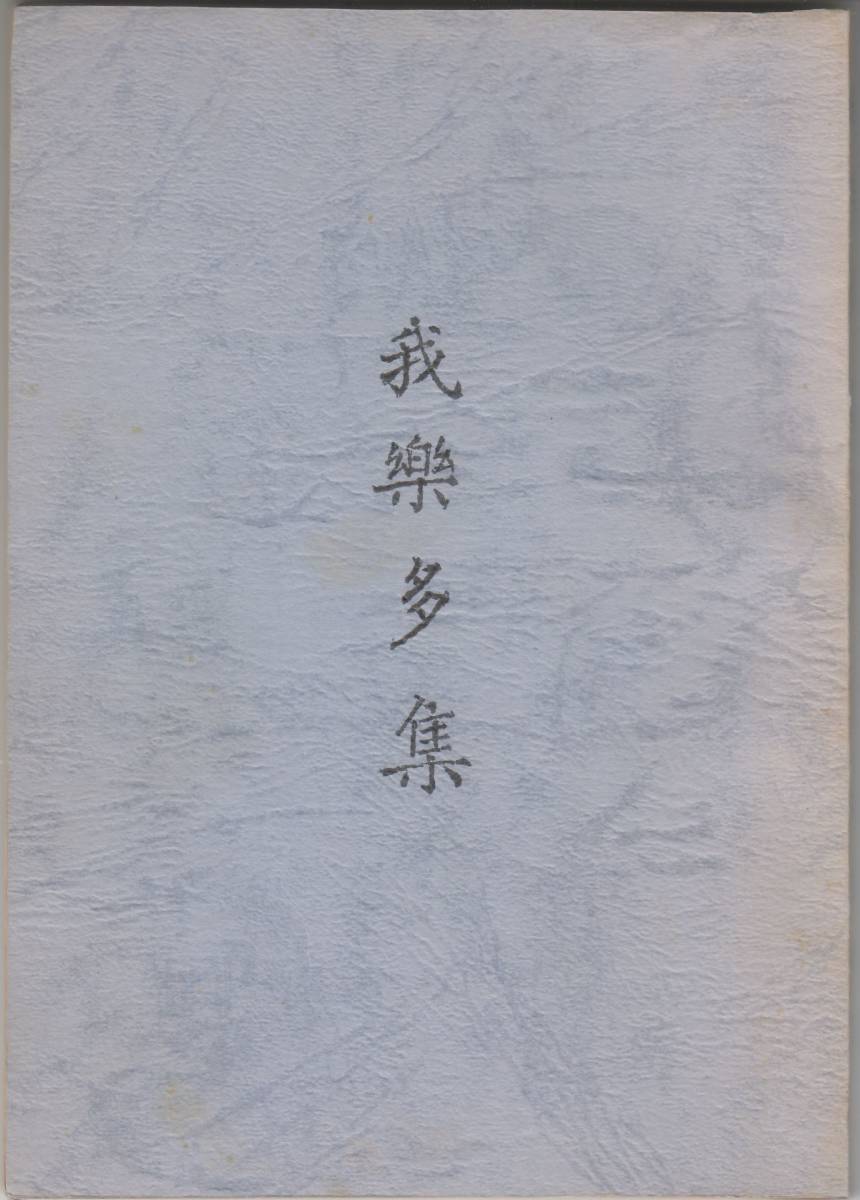 我樂多集